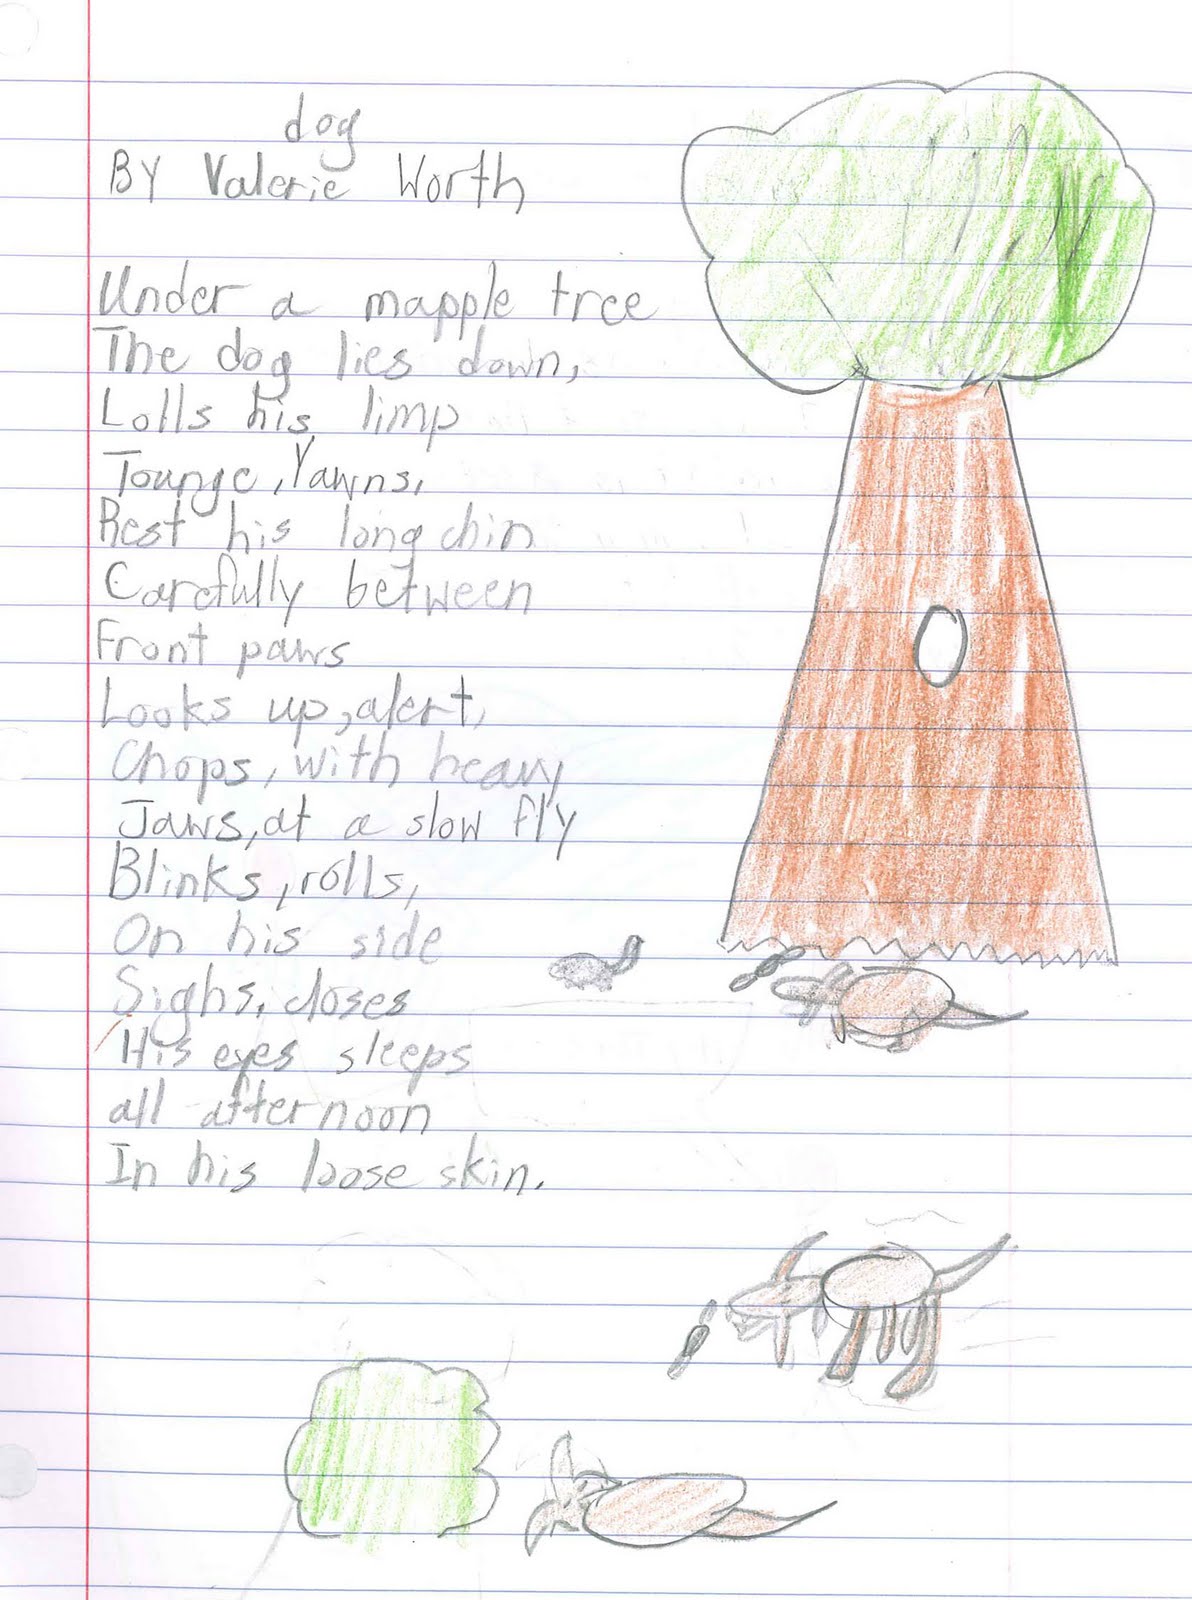 dog
BY Valerie Worth
Under a mapple tree
The dog lies down,
Lolls his limp
Tounge, Yawns,
Rest his long chin
Carefully between
Front paws
Looks up, alert,
Chops, with heavy
Jaws, at a slow fly
Blinks, rolls,
On his side
Sighs, closes
His eyes sleeps
all afternoon
In his loose skin.